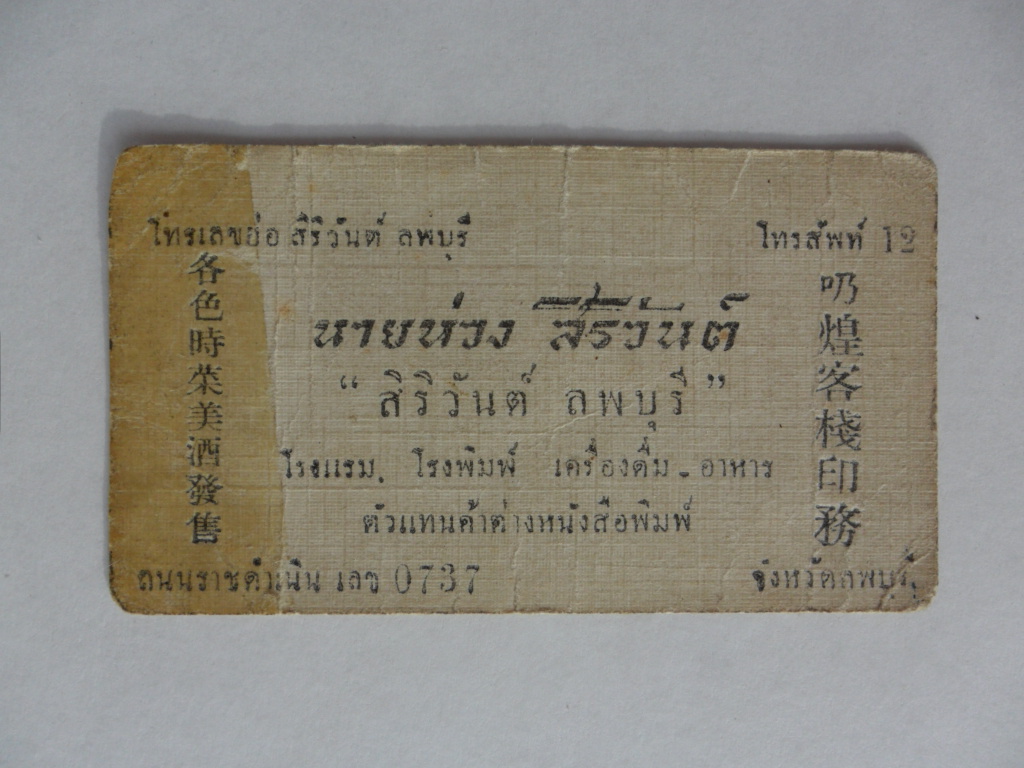 โทรเลขย่อ สิริวันต์ ลพบุรี
โทรสัพท์ 12
นายห่วง สิริวันต์
“ สิริวันต์ ลพบุรี ”
โรงแรม. โรงพิมพ์ เครื่องดื่ม - อาหาร
ตัวแทนค้าต่างหนังสือพิมพ์
ถนนราชดำเนิน เลข 0737
จังหวัดลพบุรี
各色時菜美酒發售
叻煌客棧印務